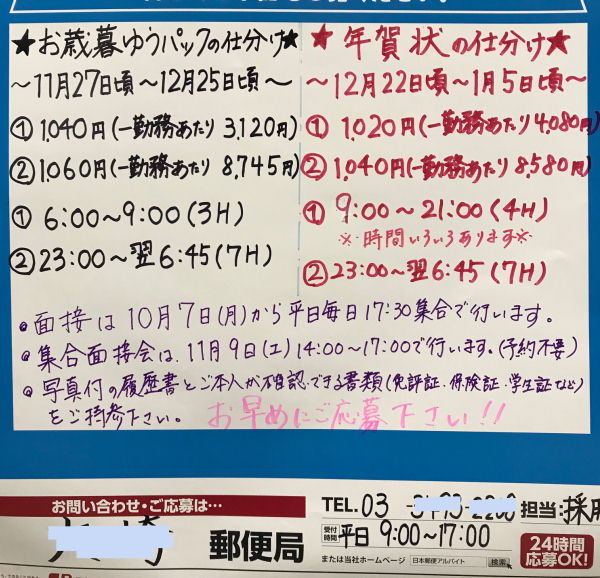 ★お歳暮ゆうパックの仕分け★
～11月27日頃～12月25日頃～
①1,040円(一勤務あたり3,120円)
②1,060円(一勤務あたり8,745円)
①6:00～9:00(3H)
②23:00～翌6:45(7H)
★年賀状の仕分け★
～12月22日頃～1月5日頃～
①1,020円(一勤務あたり4,080円)
②1,040円(一勤務あたり8,580円)
①9:00～21:00(4H)
※時間いろいろあります※
②23:00～翌6:45(7H)
●面接は10月7日(月)から平日毎日17:30集合で行います。
●集合面接会は、11月9日(土)14:00～17:00で行います。(予約不要)
●写真付の履歴書とご本人が確認できる書類(免許証・保険証・学生証など)
をご持参下さい。 お早めにご応募下さい!!
お問い合わせ・ご応募は…
郵便局
TEL. 03 担当:採用
受付時間 平日 9:00～17:00
または当社ホームページ 日本郵便アルバイト 検索
24時間
応募OK!